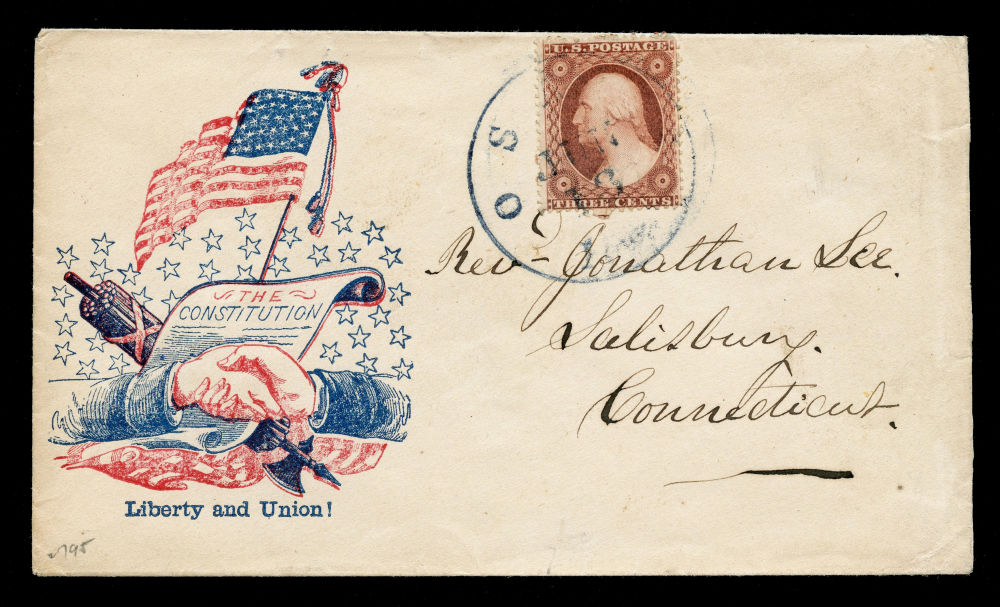 U.S. POSTAGE
THREE CENTS
THE
CONSTITUTION
Liberty and Union!
Rev- Jonathan Lee.
Salisbury.
Connecticut.